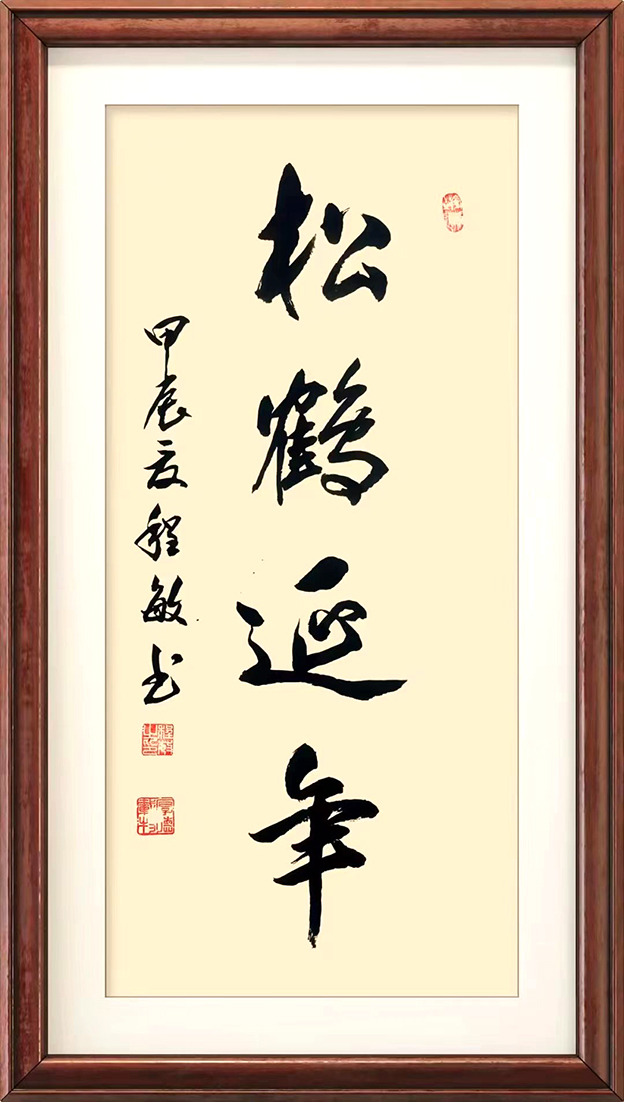 松鶴延年
甲辰夏程敏书